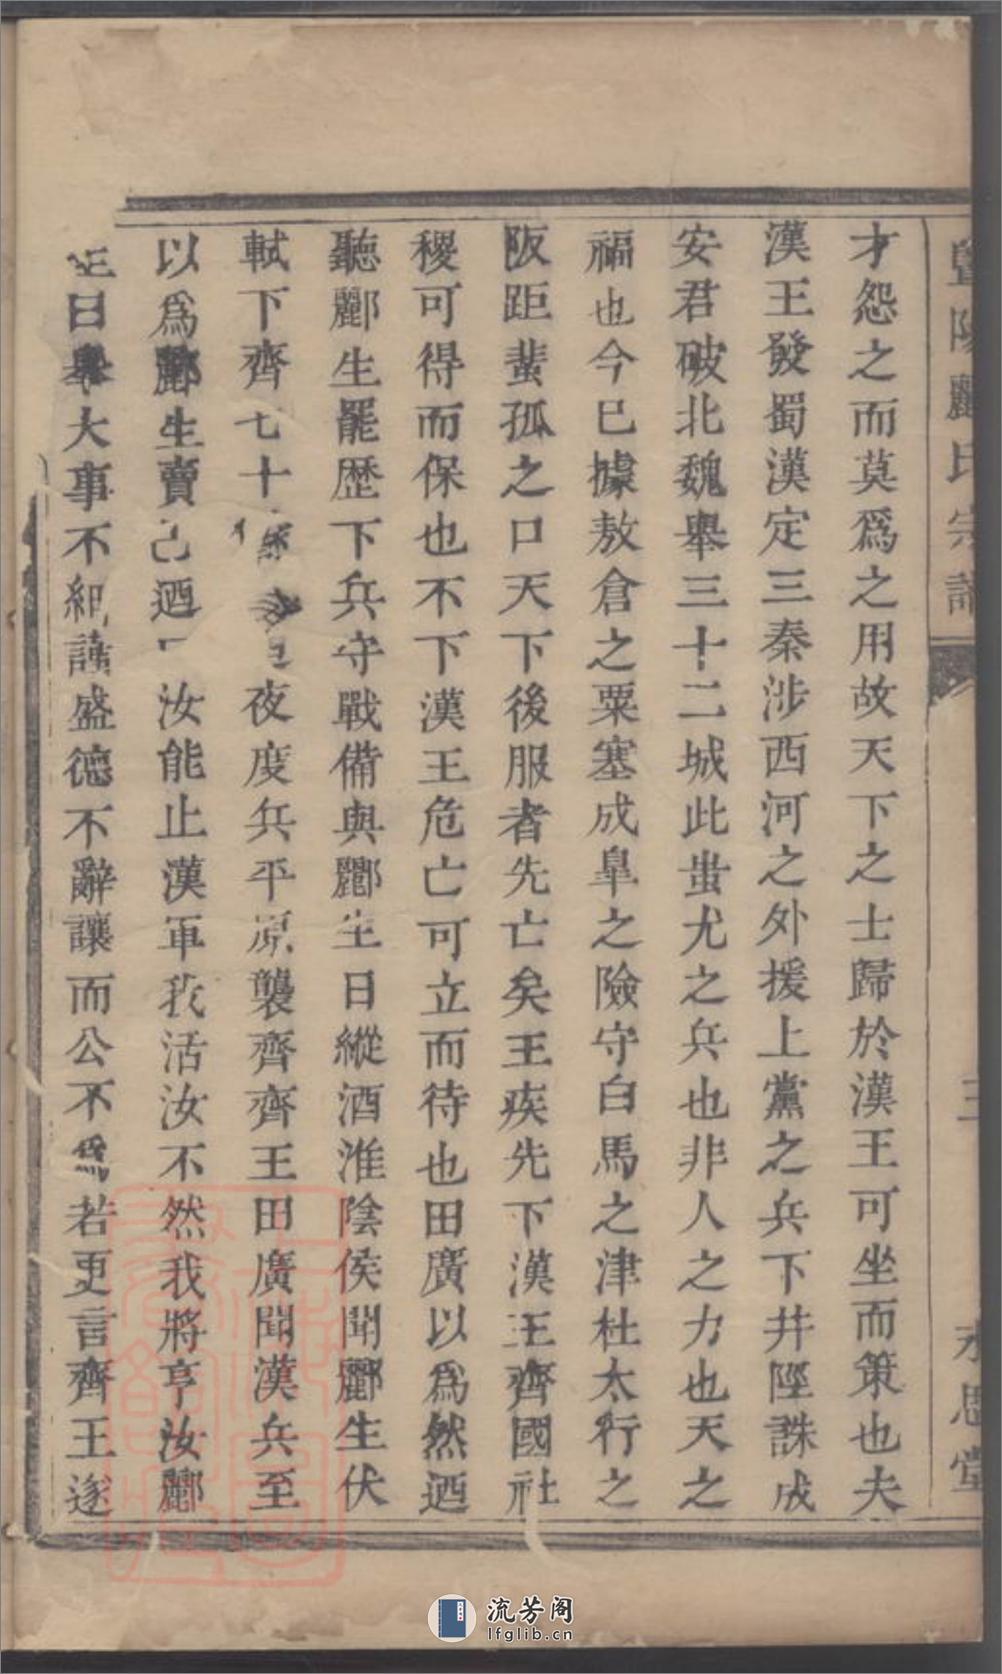 暨陽酈氏宗譜
三
永思堂
才怨之而莫爲之用故天下之士歸於漢王可坐而策也夫
漢王發蜀漢定三秦涉西河之外援上黨之兵下井陘誅成
安君破北魏舉三十二城此蚩尤之兵也非人之力也天之
福也今已據敖倉之粟塞成臯之險守白馬之津杜太行之
阪距蜚孤之口天下後服者先亡矣王疾先下漢王齊國社
稷可得而保也不下漢王危亡可立而待也田廣以爲然迺
聽酈生罷歷下兵守戰備與酈生日縱酒淮陰侯聞酈生伏
軾下齊七十夜度兵平原襲齊齊王田廣聞漢兵至
以爲酈生賣己迺汝能止漢軍我活汝不然我將亨汝酈
生曰舉大事不細謹盛德不辭讓而公不爲若更言齊王遂
流芳阁
lfglib.cn